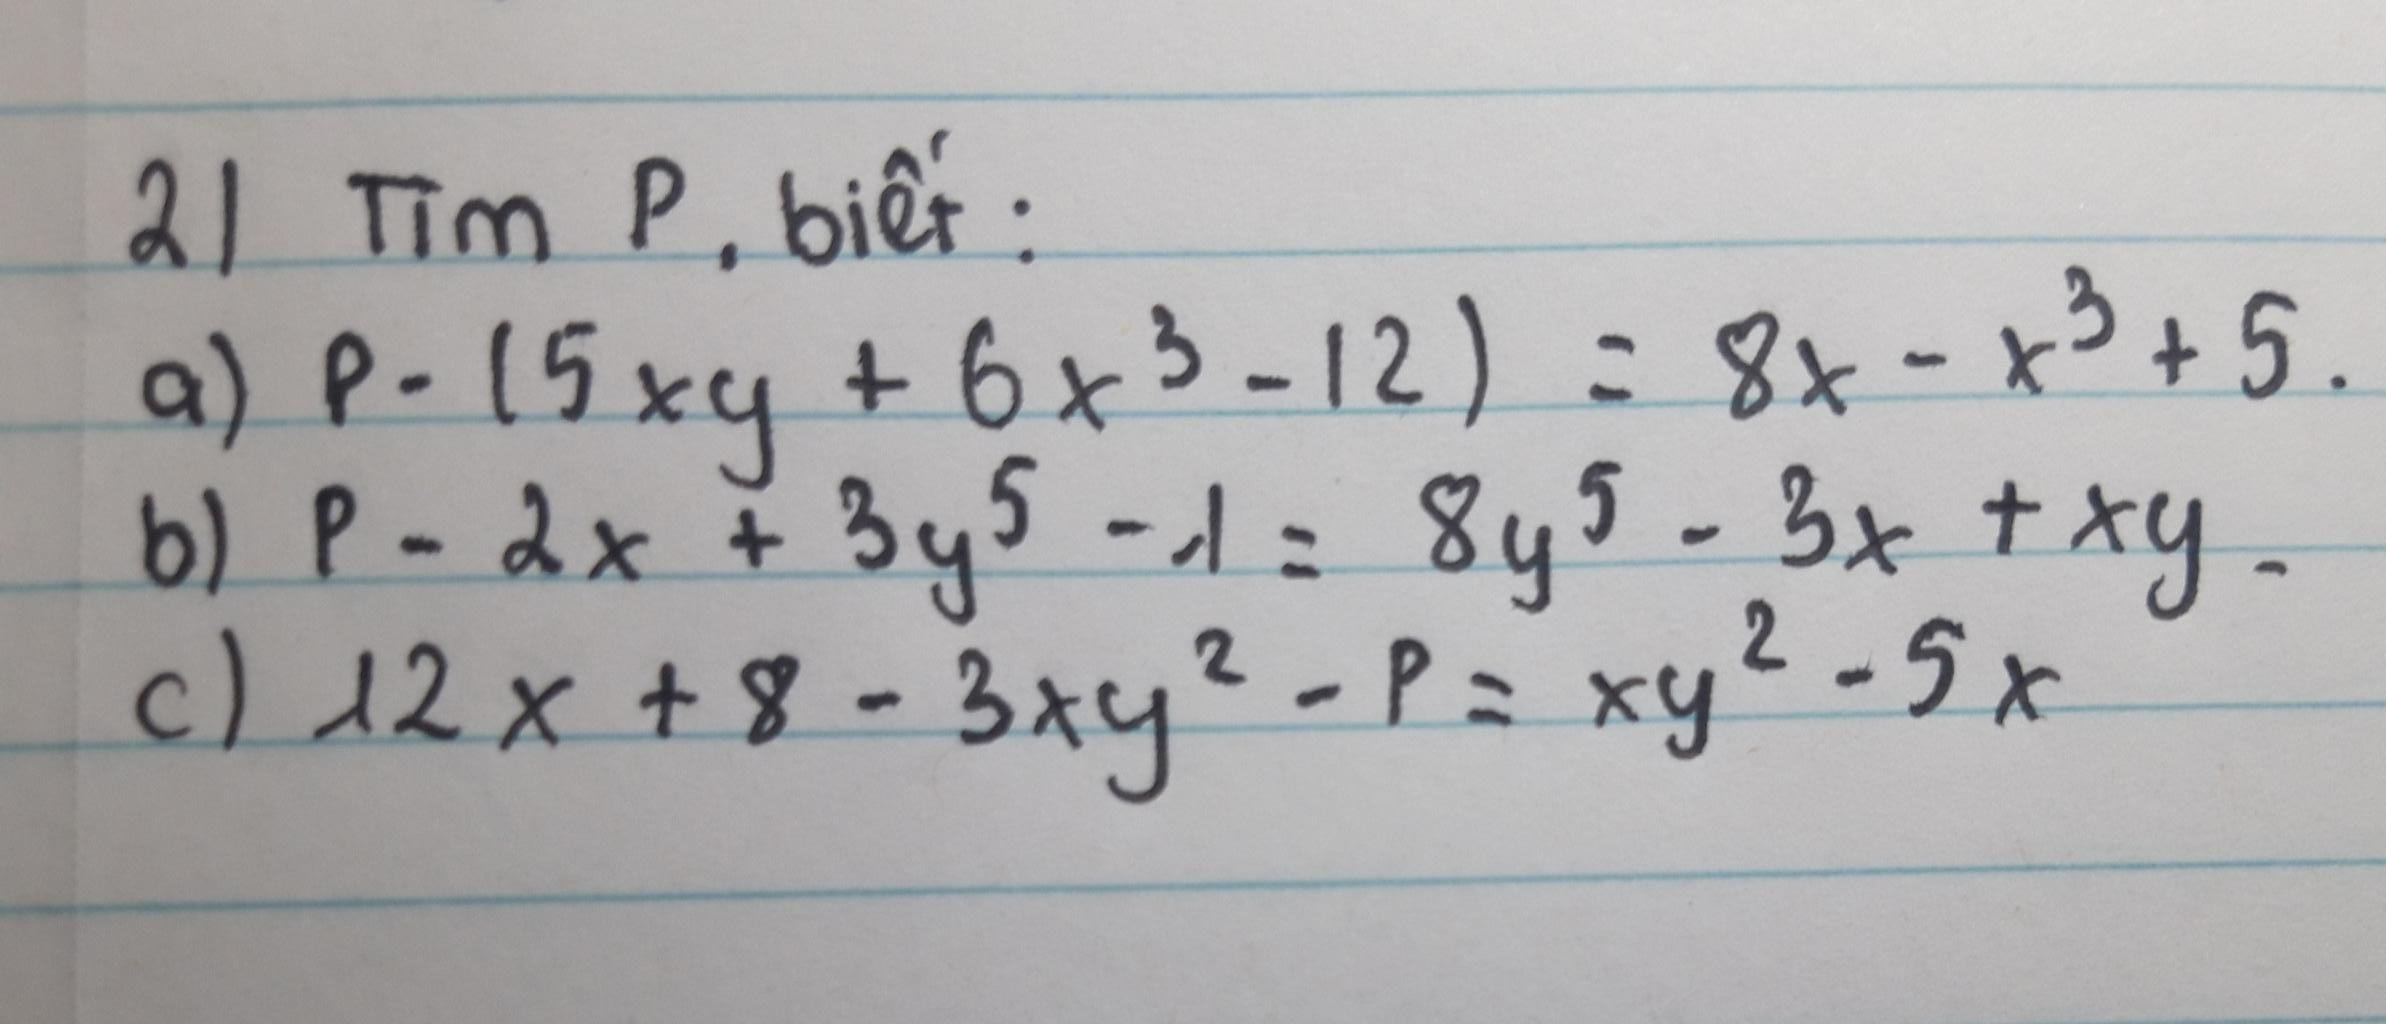 2/ Tìm P, biết:
a) P - (5xy + 6x³ - 12) = 8x - x³ + 5.
b) P - 2x + 3y⁵ - 1 = 8y⁵ - 3x + xy.
c) 12x + 8 - 3xy² - P = xy² - 5x